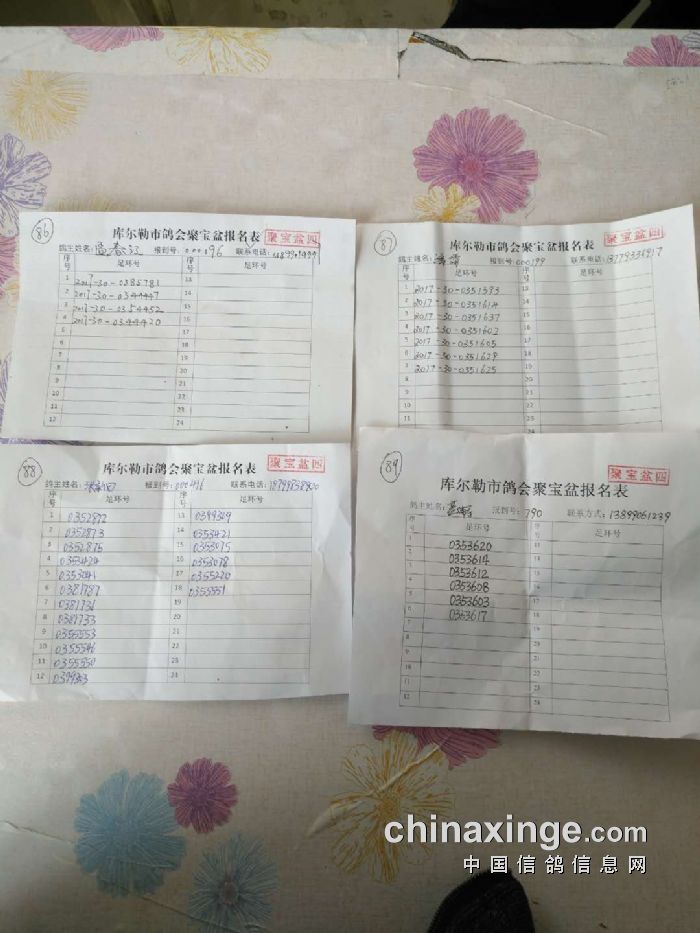 86
库尔勒市鸽会聚宝盆报名表
聚宝盆四
鸽主姓名: 报到号: 000196 联系电话:
序号 足环号 序号 足环号
1 13
2 2017-30-0344447
3 2017-30-0354452 15
4 2017-30-0344420 16
5 17
6 18
7 19
8 20
9 21
10 22
11 23
12 24
87
库尔勒市鸽会聚宝盆报名表
聚宝盆四
鸽主姓名: 报到号: 000199 联系电话: 13779336917
序号 足环号 序号 足环号
1 2017-30-0351593 13
2 2017-30-0351614 14
3 2017-30-0351637 15
4 2017-30-0351602 16
5 2017-30-0351605 17
6 2017-30-0351628 18
7 2017-30-0351625 19
8 20
9 21
10 22
11 23
24
88
库尔勒市鸽会聚宝盆报名表
聚宝盆四
鸽主姓名: 报到号: 000416 联系电话: 18799838900
序号 足环号 序号 足环号
1 0352892 13 0399309
2 0352873 14 0353421
3 0352875 15 0353075
4 0353424 16 0353078
5 0353041 17 0355220
6 0381787 18 0355551
7 0381731 19
8 0381733 20
9 0355553 21
10 0355546 22
11 0355550 23
12 0399303 24
89
库尔勒市鸽会聚宝盆报名表
聚宝盆四
鸽主姓名: 报到号: 790 联系方式: 13899061239
序号 足环号 序号 足环号
1 0353620 13
2 0353614 14
3 0353612 15
4 0353608 16
5 0353603 17
6 0353617 18
7 19
8 20
9 21
10 22
11 23
12 24
chinaxinge.com
中国信鸽信息网